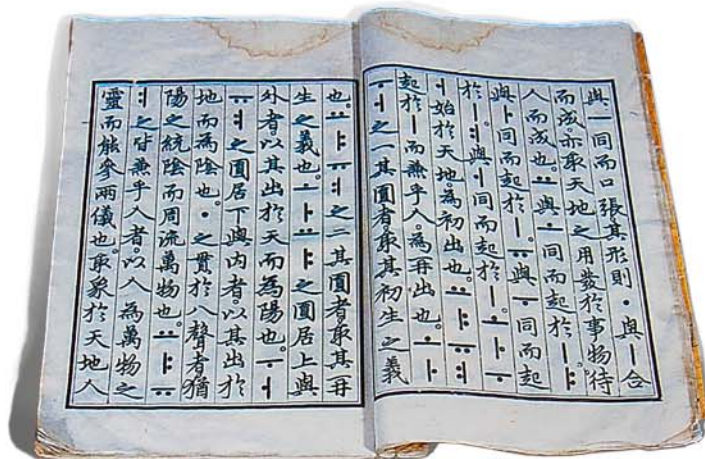 與ㅡ同而口張其形則ㆍ與ㅣ合
而成亦取天地之用發於事物待
人而成也。ㅛ與ㅗ同而起於ㅣ。ㅑ
與ㅏ同而起於ㅣ。ㅠ與ㅜ同而起
於ㅣ。ㅕ與ㅓ同而起於ㅣ。ㅗㅏㅜ
ㅓ始於天地為初出也。ㅛㅑㅠㅕ
起於ㅣ而兼乎人為再出也。ㅗㅏ
ㅜㅓ之一其圓者。取其初生之義
也。ㅛㅑㅠㅕ之二其圓者取其再
生之義也。ㅗㅏㅛㅑ之圓居上與
外者。以其出於天而為陽也。ㅜㅓ
ㅠㅕ之圓居下與內者以其出於
地而為陰也。ㆍ之貫於八聲者猶
陽之統陰而周流萬物也。ㅛㅑㅠ
ㅕ之皆兼乎人者。以人為萬物之
靈而能參兩儀也。取象於天地人